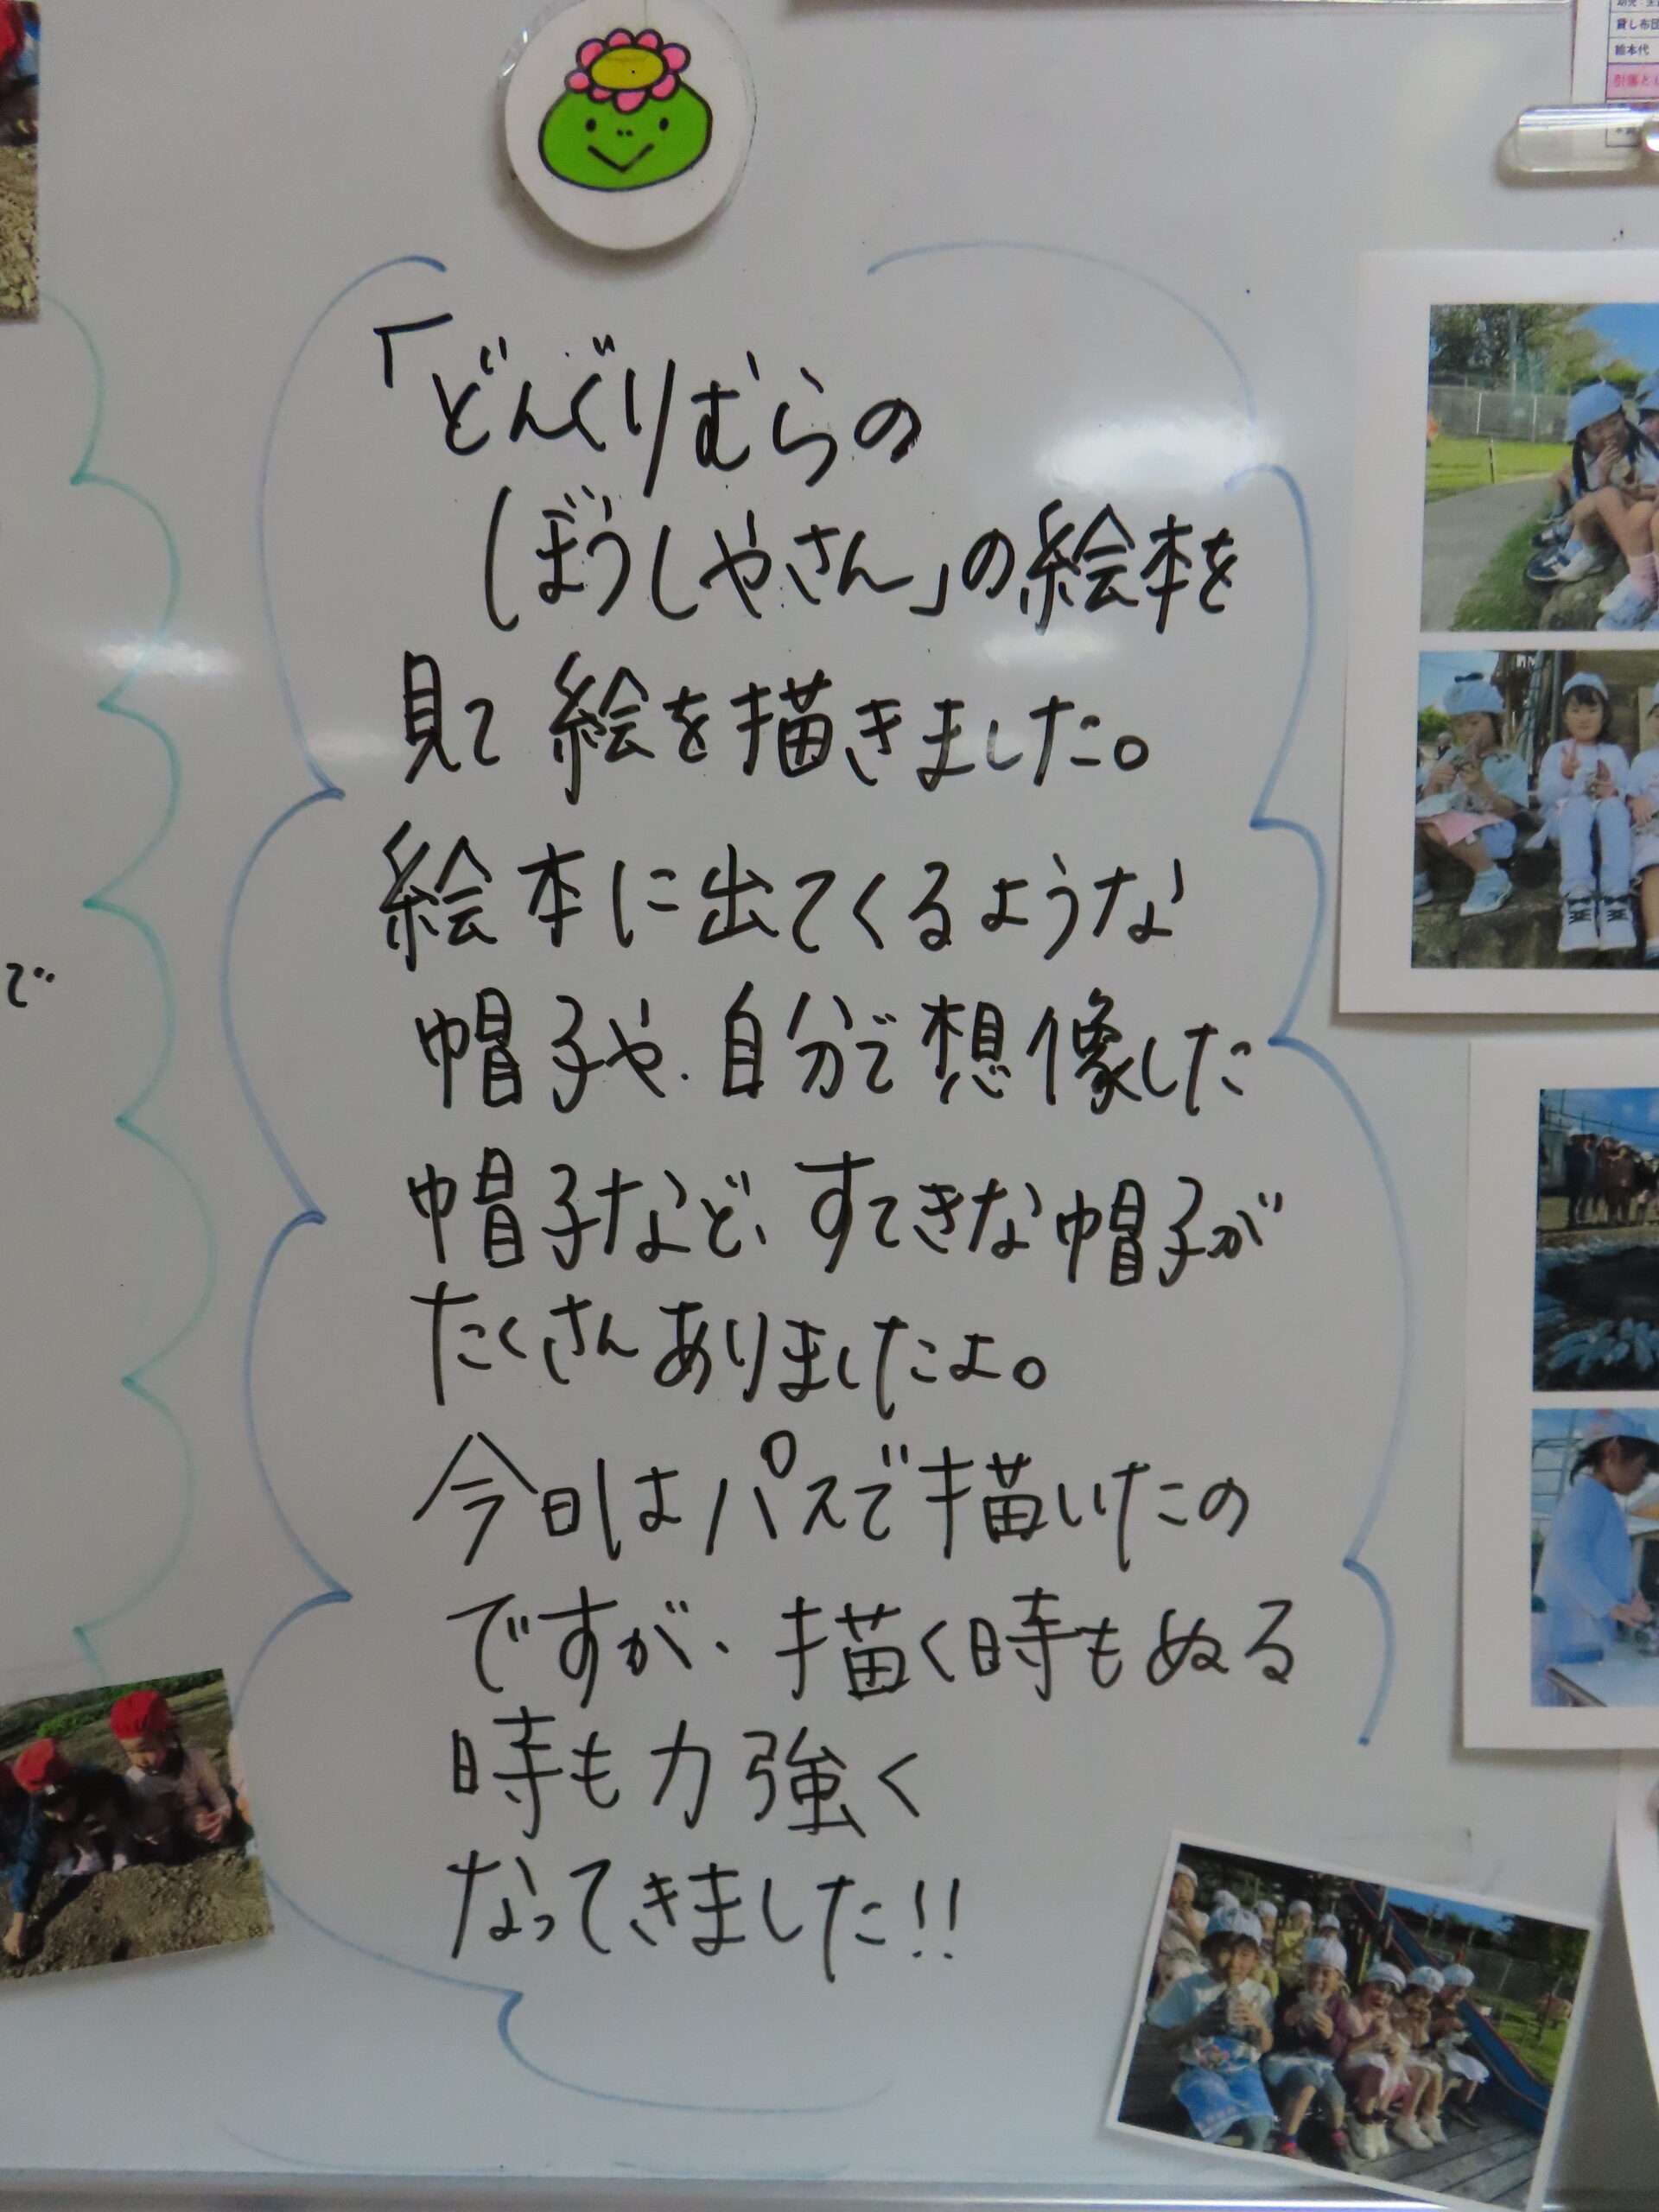 「どんぐりむらの
ぼうしやさん」の絵本を
見て 絵を描きました。
絵本に出てくるような
帽子や、自分で想像した
帽子など、すてきな帽子が
たくさんありましたよ。
今日はパスで描いたの
ですが、描く時もぬる
時も力強く
なってきました!!
で
貸し布団
絵本代